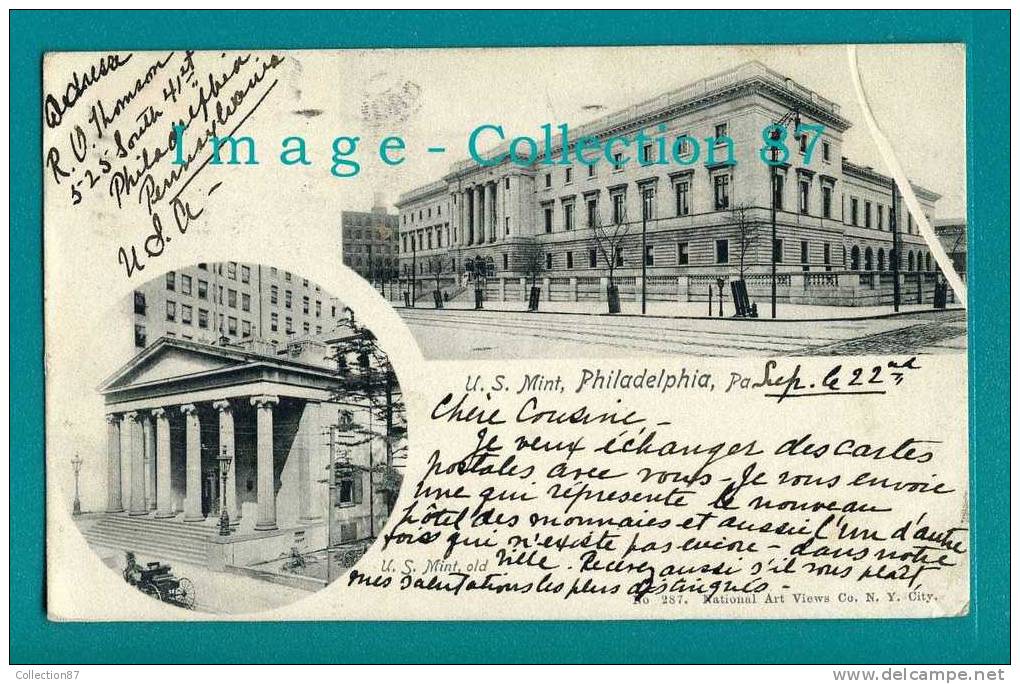 Adresse
R. O. Thomson
525 South 41st
Philadelphia
Pennsylvania
U. S. A.
Image - Collection 87
U. S. Mint, Philadelphia, Pa.
Sep. le 22nd
Chère Cousine,
Je veux échanger des cartes
postales avec vous - Je vous envoie
une qui représente le nouveau
hôtel des monnaies et aussi l'un d'autre
fois qui n'existe pas encore - dans notre
ville. Recevez aussi s'il vous plaît
mes salutations les plus distingués -
U. S. Mint, old
No 287. National Art Views Co. N. Y. City.
Collection87
www.delcampe.net